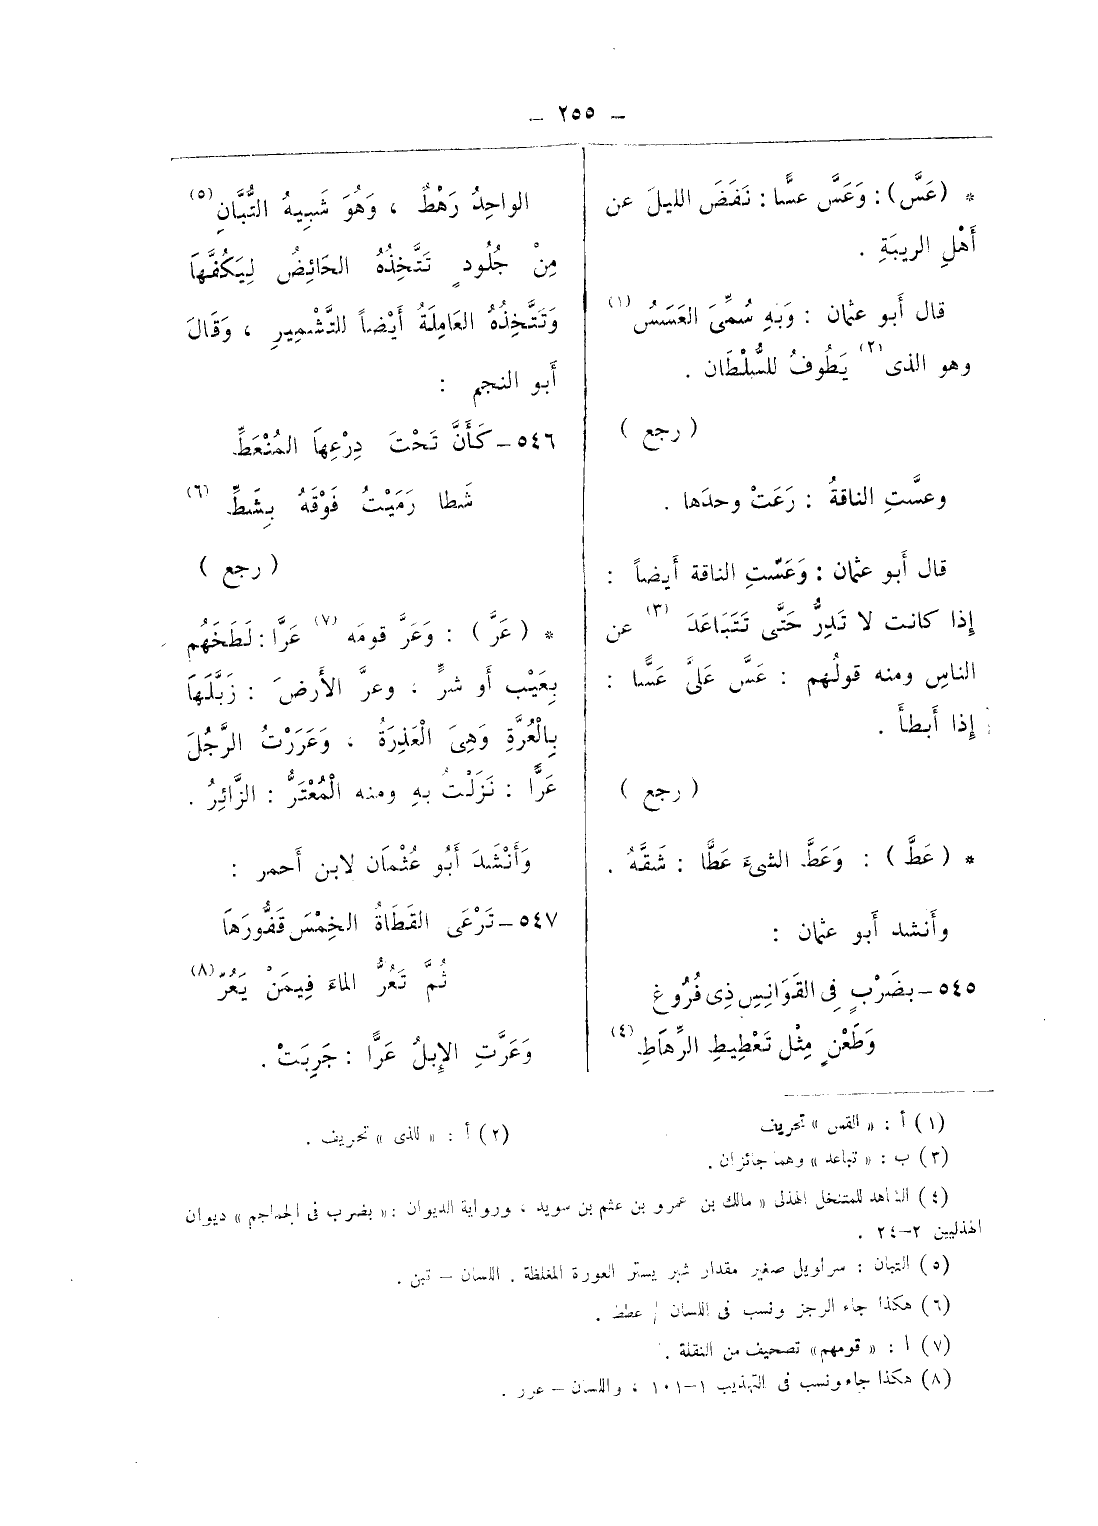 – ٢٥٥ –
* (عَسَّ) : وَعَسَّ عسًّا : نَفَضَ الليلَ عن
أَهْلِ الريبَةِ .
قال أَبو عثمان : وَبَهِ سُمِّىَ العَسَسُ (١)
وهو الذى (٢) يَطُوفُ للسُّلْطَان .
( رجع )
وعسَّتِ الناقةُ : رَعَتْ وحدَها .
قال أَبو عثمان : وَعَسَّتِ الناقة أَيضاً :
إِذا كانت لا تَدِرُّ حَتَّى تَتَبَاعَدَ (٣) عن
الناسِ ومنه قولُهم : عَسَّ عَلىَّ عَسًّا :
إِذا أَبطأَ .
( رجع )
* (عَطَّ) : وَعَطَّ الشىءَ عَطًّا : شَقَّهُ .
وأَنشد أَبو عثمان :
٥٤٥ – بضَرْبٍ فِى القَوَانِسِ ذِى فُرُوغٍ
وَطَعْنٍ مِثْل تَعْطِيطِ الرِّهَاطِ (٤)
الواحِدُ رَهْطٌ ، وَهُوَ شَبِيهُ التُّبَّانِ (٥)
مِنْ جُلُودٍ تَتَّخِذُهُ الحَائِضُ لِيَكُفَّهَا
وَتَتَّخِذُهُ العَامِلَةُ أَيْضاً للتَّشْمِيرِ ، وَقَالَ
أَبو النجم :
٥٤٦ – كَأَنَّ تَحْتَ دِرْعِهَا المُنْعَطِّ
شَطا رَمَيْتُ فَوْقَهُ بِشَطِّ (٦)
( رجع )
* (عَرَّ) : وَعَرَّ قومَه (٧) عَرًّا : لَطَخَهُم
بِعَيْب أَو شرٍّ ، وعرَّ الأَرضَ : زَبَّلَهَا
بِالْعُرَّةِ وَهِىَ الْعَذِرَةُ ، وَعَرَرْتُ الرَّجُلَ
عَرًّا : نَزَلْتُ بهِ ومنه الْمُعْتَرُّ : الزَّائِرُ .
وَأَنْشَدَ أَبُو عُثْمَان لابن أَحمر :
٥٤٧ – تَرْعَى القَطَاةُ الخِمْسَ قَفُّورَهَا
ثُمَّ تَعُرُّ الماءَ فِيمَنْ يَعُرّ (٨)
وَعَرَّتِ الإِبلُ عَرًّا : جَرِبَتْ .
(١) أ : « القس » تحريف
(٢) أ : « للذى » تحريف .
(٣) ب : « تباعد » وهما جائزان .
(٤) الشاهد للمتنخل الهذلى « مالك بن عمرو بن عثم بن سويد ، ورواية الديوان : « بضرب فى الجماجم » ديوان
الهذليين ٢–٢٤ .
(٥) التبان : سراويل صغير مقدار شبر يستر العورة المغلظة . اللسان – تبن .
(٦) هكذا جاء الرجز ونسب فى اللسان / عطط .
(٧) ا : « قومهم» تصحيف من النقلة .
(٨) هكذا جاء ونسب فى التهذيب ١–١٠١ ، واللسان – عرر .